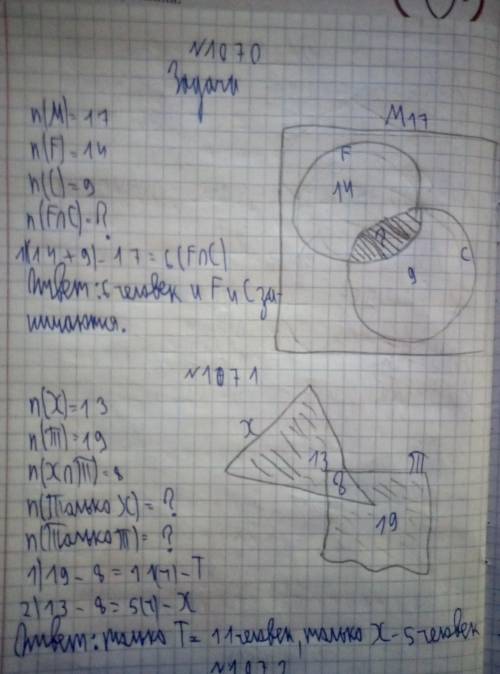 №1070
Задачи
M17
n(M)=17
n(F)=14
n(C)=9
n(F∩C)-?
F
14
?
C
9
1)(14+9)-17=6(F∩C)
Ответ: 6 человек и F и C за-
нимаются.
№1071
n(X)=13
n(T)=19
n(X∩T)=8
n(Только X)=?
n(Только T)=?
X
13
8
T
19
1)19-8=11(ч)-T
2)13-8=5(ч)-X
Ответ: только T=11человек, только X-5человек
№1072